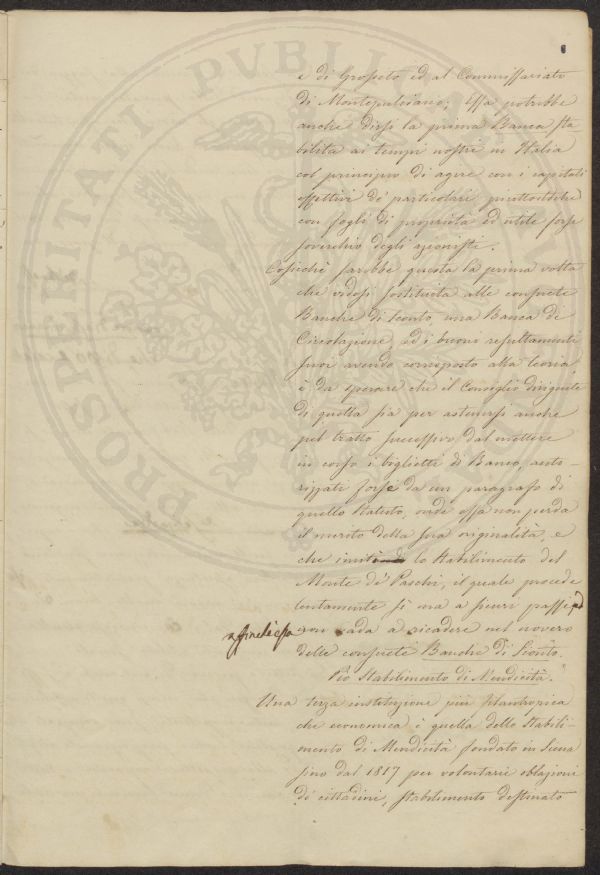 PROSPERITATI PVBLI
e di Grosseto ed al Commissariato
di Montepulciano; Essa potrebbe
anche dirsi la prima Banca sta-
bilita ai tempi nostri in Italia
col principio di agire con i capitali
effettivi de' particolari piuttostochè
con fogli di proprietà ed utile forse
soverchio degli azionisti.
Cosicchè sarebbe questa la prima volta
che vedesi sostituita alle consuete
Banche di Sconto, una Banca di
Circolazione, ed i buoni resultamenti
suoi avendo corrisposto alla teoria,
è da sperare che il Consiglio dirigente
di quella sia per astenersi anche
pel tratto successivo dal mettere
in corso i biglietti di Banco, auto-
rizzati forse da un paragrafo di
quello Statuto, onde essa non perda
il merito della sua originalità, e
che imiti lo Stabilimento del
Monte de' Paschi, il quale procede
lentamente sì ma a sicuri passi
affinchè essa non vada a ricadere nel novero
delle consuete Banche di Sconto.
Pio Stabilimento di Mendicità.
Una terza instituzione più filantropica
che economica è quella dello Stabili-
mento di Mendicità fondato in Siena
sino dal 1817 per volontarie oblazioni
di cittadini, stabilimento destinato